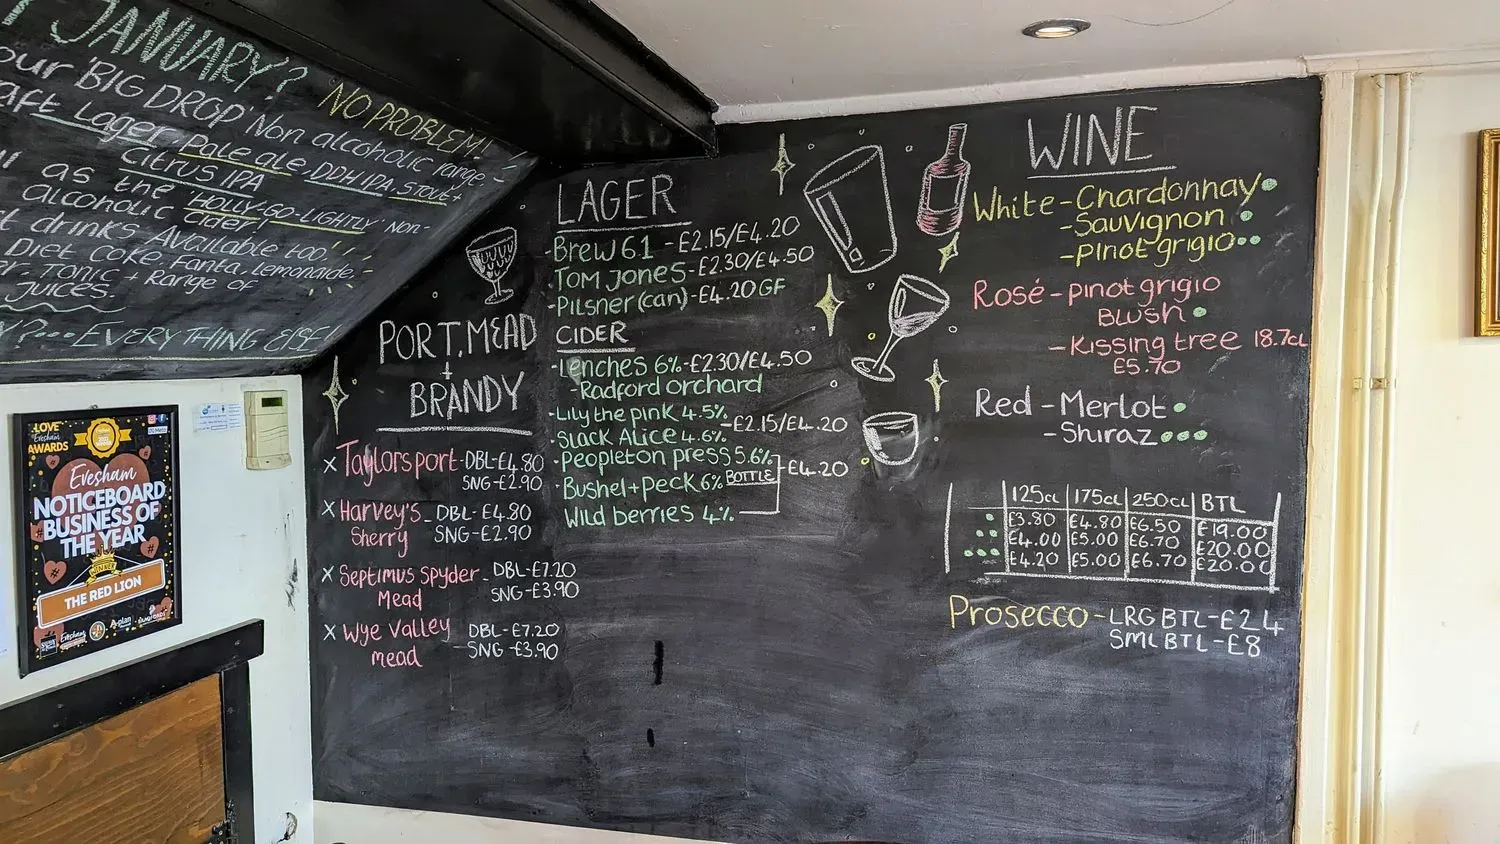 JANUARY?
NO PROBLEM!
our 'BIG DROP' Non alcoholic range.
Lager, Pale ale, DDH IPA, Stout +
Citrus IPA
as the 'HOLLY-GO-LIGHTLY' NON-
alcoholic cider!
drinks Available too.
Diet Coke, Fanta, Lemonade,
Tonic + Range of
Juices.
EVERYTHING ELSE!
LOVE
Evesham
AWARDS
Evesham
NOTICEBOARD
BUSINESS OF
THE YEAR
WINNER
THE RED LION
PORT, MEAD
+
BRANDY
x Taylors port - DBL - £4.80
SNG - £2.90
x Harvey's - DBL - £4.80
Sherry SNG - £2.90
x Septimus Spyder - DBL - £7.20
Mead SNG - £3.90
x Wye Valley DBL - £7.20
mead - SNG - £3.90
LAGER
- Brew 61 - £2.15/£4.20
- Tom Jones - £2.30/£4.50
- Pilsner (can) - £4.20 GF
CIDER
- Lenches 6% - £2.30/£4.50
- Radford orchard
- Lily the pink 4.5%
- Slack Alice 4.6% - £2.15/£4.20
- Peopleton press 5.6%
- Bushel + Peck 6% BOTTLE - £4.20
Wild berries 4%
WINE
White - Chardonnay
- Sauvignon
- pinot grigio
Rosé - pinot grigio
BLUSH
- Kissing tree 18.7cl
£5.70
Red - Merlot
- Shiraz
125cl 175cl 250cl BTL
£3.80 £4.80 £6.50 £19.00
£4.00 £5.00 £6.70 £20.00
£4.20 £5.00 £6.70 £20.00
Prosecco - LRG BTL - £24
SML BTL - £8